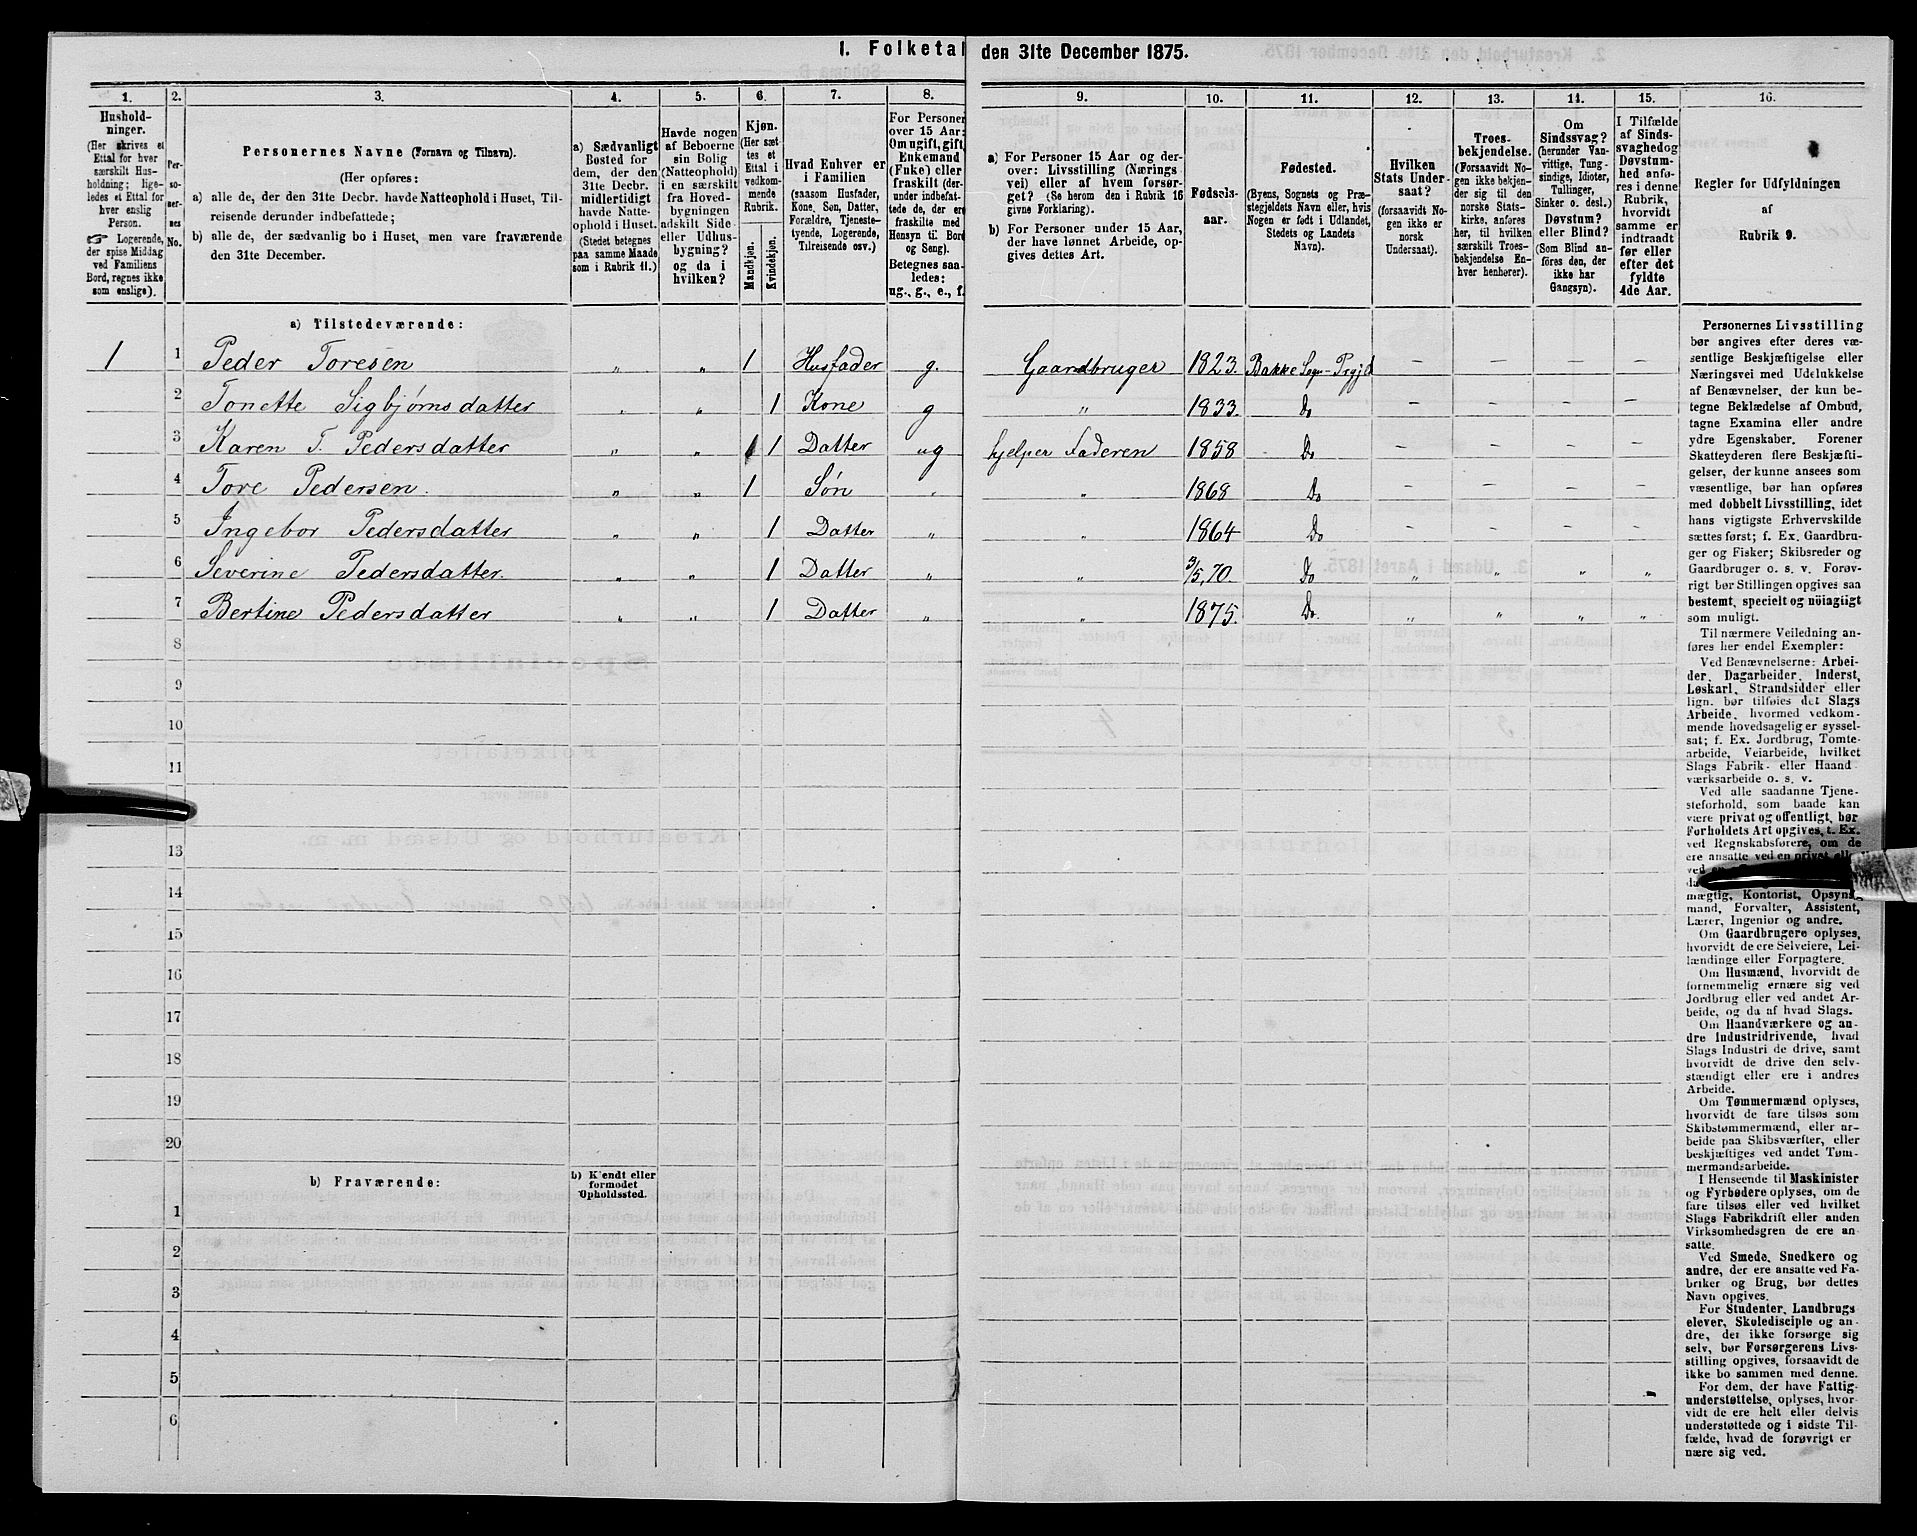 1. Folketal den 31te December 1875.
1. 2. 3. 4. 5. 6. 7. 8. 9. 10. 11. 12. 13. 14. 15. 16.
Hushold-
ninger.
(Her skrives et
Ettal for hver
særskilt Hus-
holdning; lige-
ledes et Ettal for
hver enslig
Person.
☞ Logerende,
der spise Middag
ved Familiens
Bord, regnes ikke
som enslige).
Per-
so-
ner-
nes
No.
Personernes Navne (Fornavn og Tilnavn).
(Her opføres:
a) alle de, der den 31te Decbr. havde Natteophold i Huset, Til-
reisende derunder indbefattede;
b) alle de, der sædvanlig bo i Huset, men vare fraværende
den 31te December.
a) Sædvanligt
Bosted for
dem, der den
31te Decbr.
midlertidigt
havde Natte-
ophold i Huset.
(Stedet betegnes
paa samme Maade
som i Rubrik 11.)
Havde nogen
af Beboerne
sin Bolig
(Natteophold)
i en særskilt
fra Hoved-
bygningen
adskilt Side-
eller Udhus-
bygning?
og da i
hvilken?
Kjøn.
(Her sæt-
tes et
Ettal i
vedkom-
mende
Rubrik.
Mandkjøn.
Kvindekjøn.
Hvad Enhver er
i Familien
(saasom Husfader,
Kone, Søn, Datter,
Forældre, Tjeneste-
tyende, Logerende,
Tilreisende osv.)
For Personer
over 15 Aar:
Om ugift, gift,
Enkemand
(Enke) eller
fraskilt (der-
under indbefat-
tede de, der ere
fraskilte med
Hensyn til Bord
og Seng).
Betegnes saa-
ledes:
ug., g., e., f.
a) For Personer 15 Aar og der-
over: Livsstilling (Nærings
vei) eller af hvem forsør-
get? (Se herom den i Rubrik 16
givne Forklaring).
b) For Personer under 15 Aar,
der have lønnet Arbeide, op-
gives dettes Art.
Fødsels-
aar.
Fødested.
(Byens, Sognets og Præ-
stegjeldets Navn eller, hvis
Nogen er født i Udlandet,
Stedets og Landets
Navn).
Hvilken
Stats Under-
saat?
(forsaavidt No-
gen ikke er
norsk
Undersaat).
Troes-
bekjendelse.
(Forsaavidt No-
gen ikke bekjen-
der sig til den
norske Stats-
kirke, anføres
her, til hvilken
særskilt Troes-
bekjendelse En-
hver henhører).
Om
Sindssvag?
(herunder Van-
vittige, Tung-
sindige, Idioter,
Tullinger,
Sinker o. desl.)
Døvstum?
eller Blind?
(Som Blind an-
føres den, der
ikke har
Gangsyn).
I Tilfælde
af Sinds-
svaghed og
Døvstum-
hed anfø-
res i denne
Rubrik,
hvorvidt
samme er
indtraadt
før eller
efter det
fyldte
4de Aar.
Regler for Udfyldningen
af
Rubrik 9.
a) Tilstedeværende:
1 1 Peder Toresen „ „ 1 Husfader g. Gaardbruger 1823. Bakke Sogn - Prgjd – – – –
2 Tonette Sigbjørnsdatter „ „ 1 Kone g „ 1833. Do – – – –
3 Karen T. Pedersdatter „ „ 1 Datter ug hjelper Faderen 1858 Do – – – –
4 Tore Pedersen. „ „ 1 Søn „ „ 1868 Do – – – –
5 Ingebor Pedersdatter „ „ 1 Datter „ „ 1864 Do – – – –
6 Severine Pedersdatter. „ „ 1 Datter „ „ 3/5, 70. Do „ „ „ „
7 Bertine Pedersdatter „ „ 1 Datter „ „ 1875. Do. „ „ „ „
8
9
10
11
13
14
15
16
17
18
19
20
b) Fraværende:
b) Kjendt eller
formodet
Opholdssted.
1
2
3
4
5
6
Personernes Livsstilling
bør angives efter deres væ-
sentlige Beskjæftigelse eller
Næringsvei med Udelukkelse
af Benævnelser, der kun be-
tegne Beklædelse af Ombud,
tagne Examina eller andre
ydre Egenskaber. Forener
Skatteyderen flere Beskjæfti-
gelser, der kunne ansees som
væsentlige, bør han opføres
med dobbelt Livsstilling, idet
hans vigtigste Erhvervskilde
sættes først; f. Ex. Gaardbru-
ger og Fisker; Skibsreder og
Gaardbruger o. s. v. Forøv-
rigt bør Stillingen opgives saa
bestemt, specielt og nöiagtigt
som muligt.
Til nærmere Veiledning an-
føres her endel Exempler:
Ved Benævnelserne: Arbei-
der, Dagarbeider, Inderst,
Løskarl, Strandsidder eller
lign. bør tilføies det Slags
Arbeide, hvormed vedkom-
mende hovedsagelig er syssel-
sat; f. Ex. Jordbrug, Tomte-
arbeide, Veiarbeide, hvilket
Slags Fabrik- eller Haand-
værksarbeide o. s. v.
Ved alle saadanne Tjene-
steforhold, som baade kan
være privat og offentligt, bør
Forholdets Art opgives, t. Ex.
ved Regnskabsførere, om de
ere ansatte ved en privat eller
mægtig, Kontorist, Opsyns-
mand, Forvalter, Assistent,
Lærer, Ingeniør og andre.
Om Gaardbrugere oplyses,
hvorvidt de ere Selveiere, Lei-
lændinge eller Forpagtere.
Om Husmænd, hvorvidt de
fornemmelig ernære sig ved
Jordbrug eller ved andet Ar-
beide, og da af hvad Slags.
Om Haandværkere og an-
dre Industridrivende, hvad
Slags Industri de drive, samt
hvorvidt de drive den selv-
stændigt eller ere i andres
Arbeide.
Om Tømmermænd oplyses,
hvorvidt de fare tilsøs som
Skibstømmermænd, eller ar-
beide paa Skibsværfter, eller
beskjæftiges ved andet Tøm-
mermandsarbeide.
I Henseende til Maskinister
og Fyrbødere oplyses, om de
fare tilsøs eller ved hvilket
Slags Fabrikdrift eller anden
Virksomhedsgren de ere an-
satte.
Ved Smede, Snedkere og
andre, der ere ansatte ved Fa-
briker og Brug, bør dettes
Navn opgives.
For Studenter, Landbrugs-
elever, Skoledisciple og an-
dre, der ikke forsørge sig
selv, bør Forsørgerens Livs-
stilling opgives, forsaavidt de
ikke bo sammen med denne.
For dem, der have Fattig-
understøttelse, oplyses, hvor-
vidt de ere helt eller delvis
understøttede og i sidste Til-
fælde, hvad de forøvrigt er-
nære sig ved.